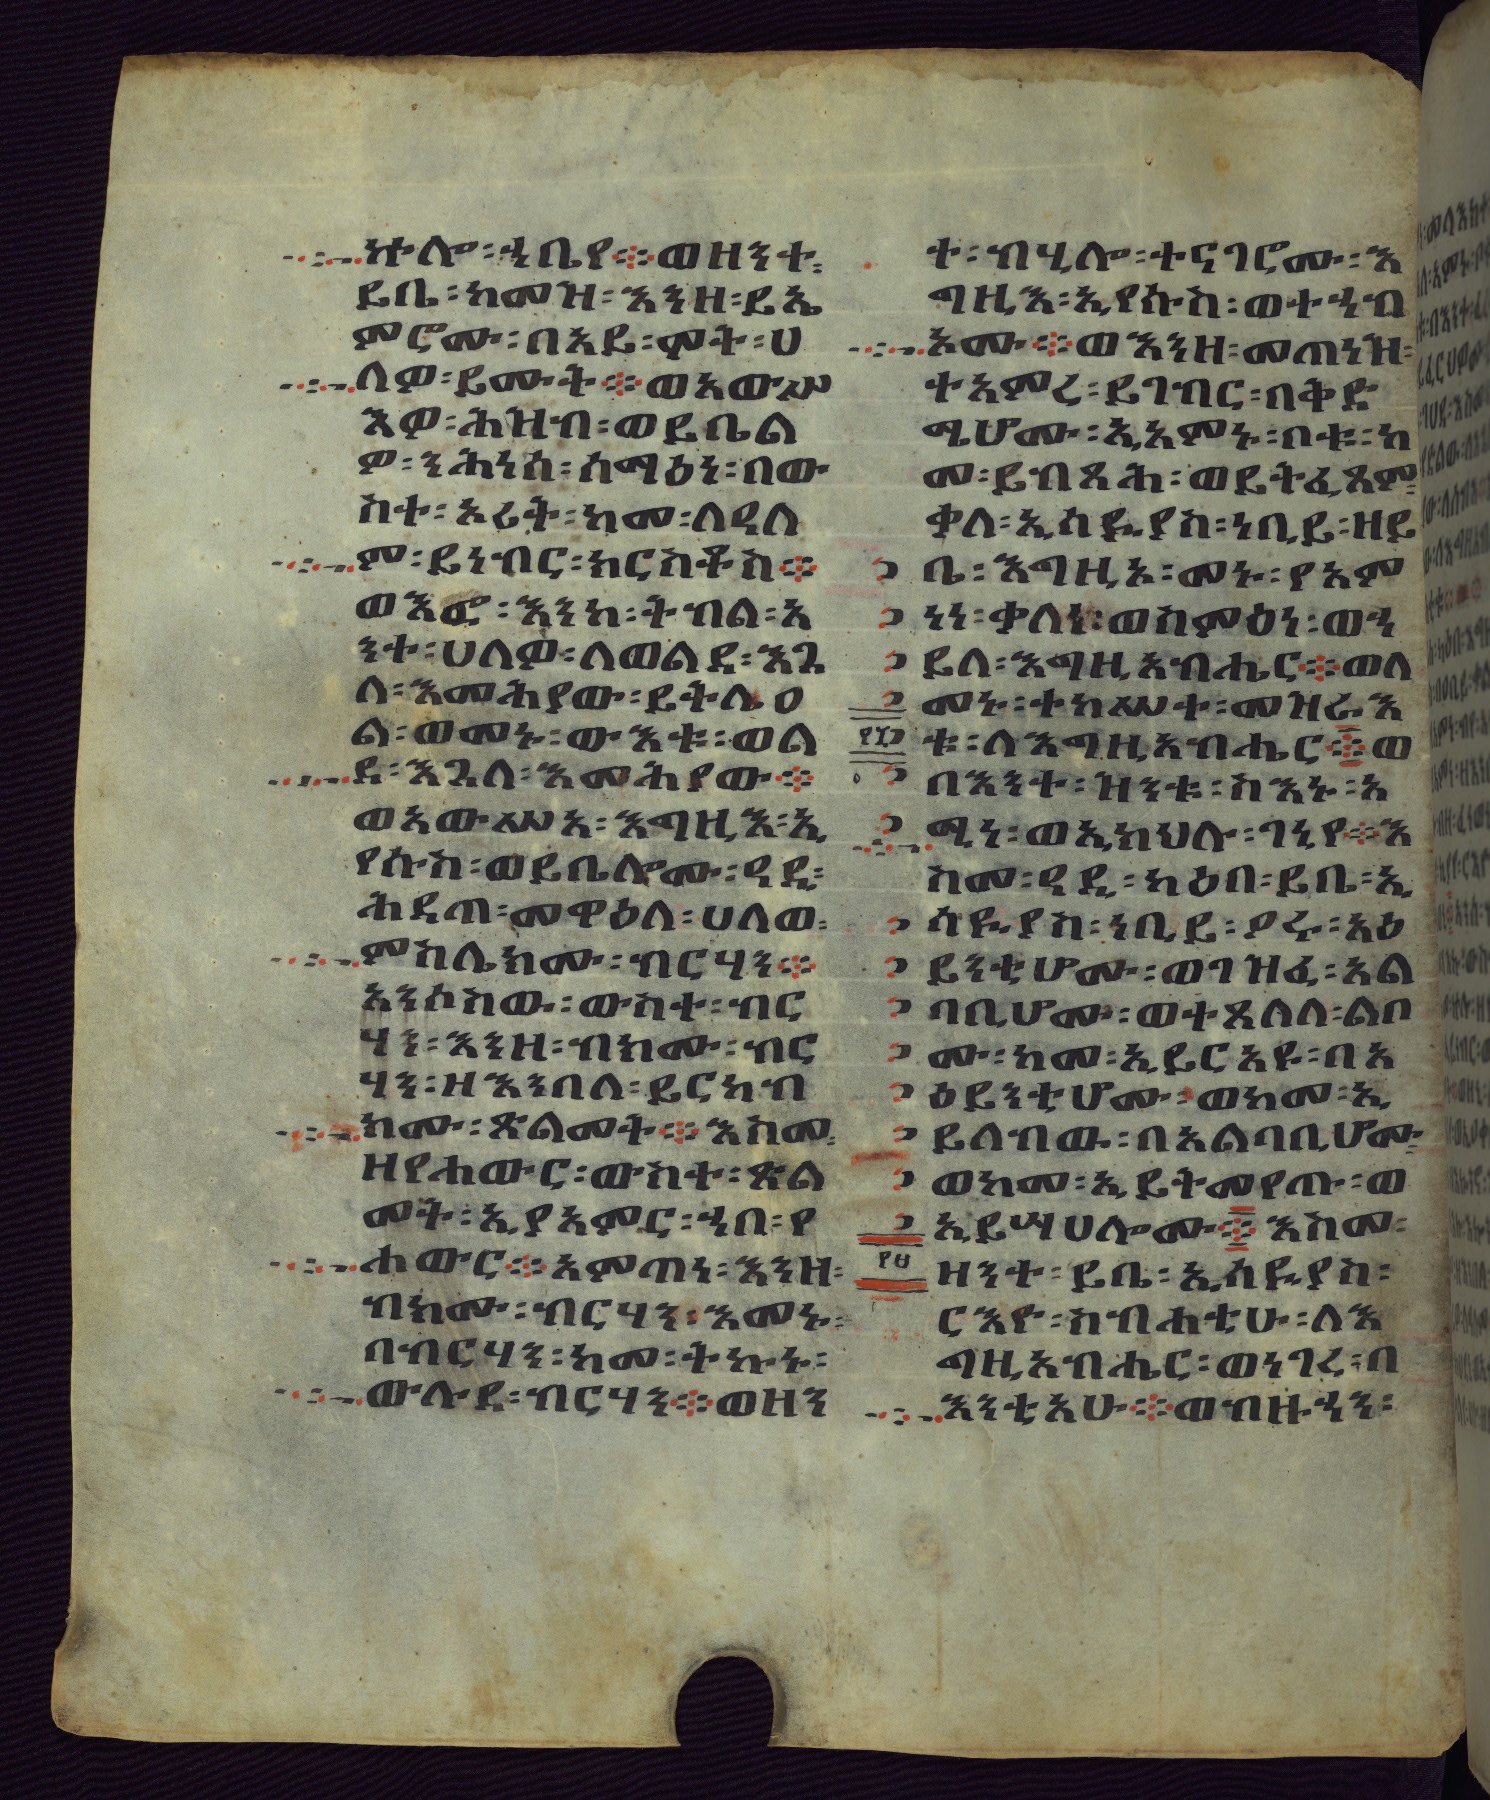 ኵሎ፡ኀቤየ፨ወዘንተ፡
ይቤ፡ከመዝ፡እንዘ፡ይኤ
ምሮሙ፡በአይ፡ሞት፡ሀ
ለዎ፡ይሙት፨ወአውሥ
እዎ፡ሕዝብ፡ወይቤል
ዎ፡ንሕነሰ፡ሰማዕነ፡በው
ስተ፡ኦሪት፡ከመ፡ለዓለ
ም፡ይነብር፡ክርስቶስ፨
ወእፎ፡እንከ፡ትብል፡አ
ንተ፡ሀለዎ፡ለወልደ፡እጓ
ለ፡እመሕያው፡ይትሌዐ
ል፡ወመኑ፡ውእቱ፡ወል
ደ፡እጓለ፡እመሕያው፨
ወአውሥአ፡እግዚእ፡ኢ
የሱስ፡ወይቤሎሙ፡ዓዲ፡
ሕዳጠ፡መዋዕለ፡ሀለወ፡
ምስሌክሙ፡ብርሃን፨
አንሶስው፡ውስተ፡ብር
ሃን፡እንዘ፡ብክሙ፡ብር
ሃን፡ዘእንበለ፡ይርከብ
ክሙ፡ጽልመት፨እስመ፡
ዘየሐውር፡ውስተ፡ጽል
መት፡ኢያአምር፡ኀበ፡የ
ሐውር፨አምጣነ፡እንዘ፡
ብክሙ፡ብርሃን፡እመኑ፡
በብርሃን፡ከመ፡ትኩኑ፡
ውሉደ፡ብርሃን፨ወዘን
ተ፡ብሂሎ፡ተናገሮሙ፡እ
ግዚእ፡ኢየሱስ፡ወተኀብ
አሙ፨ወእንዘ፡መጠነዝ፡
ተአምረ፡ይገብር፡በቅድ
ሜሆሙ፡ኢአምኑ፡ቦቱ፡ከ
መ፡ይብጻሕ፡ወይትፈጸም፡
ቃለ፡ኢሳይያስ፡ነቢይ፡ዘይ
ቤ፡እግዚኦ፡መኑ፡የአም
ነነ፡ቃለነ፡ወስምዕነ፡ወኀ
ይለ፡እግዚአብሔር፨ወለ
መኑ፡ተከሥተ፡መዝራእ
ቱ፡ለእግዚአብሔር፨ወ
በእንተ፡ዝንቱ፡ስእኑ፡አ
ሚነ፡ወኢክህሉ፡ገነየ፨እ
ስመ፡ዓዲ፡ካዕበ፡ይቤ፡ኢ
ሳይያስ፡ነቢይ፡ዖሩ፡አዕ
ይንቲሆሙ፡ወገዝፈ፡አል
ባቢሆሙ፡ወተጸለለ፡ልቦ
ሙ፡ከመ፡ኢይርአዩ፡በአ
ዕይንቲሆሙ፡ወከመ፡ኢ
ይለብው፡በአልባቢሆሙ፡
ወከመ፡ኢይትመየጡ፡ወ
ኢይሣሀሎሙ፨እስመ፡
ዘንተ፡ይቤ፡ኢሳይያስ፡
ርእዮ፡ስብሐቲሁ፡ለእ
ግዚአብሔር፡ወነገረ፡በ
እንቲአሁ፨ወብዙኃን፡